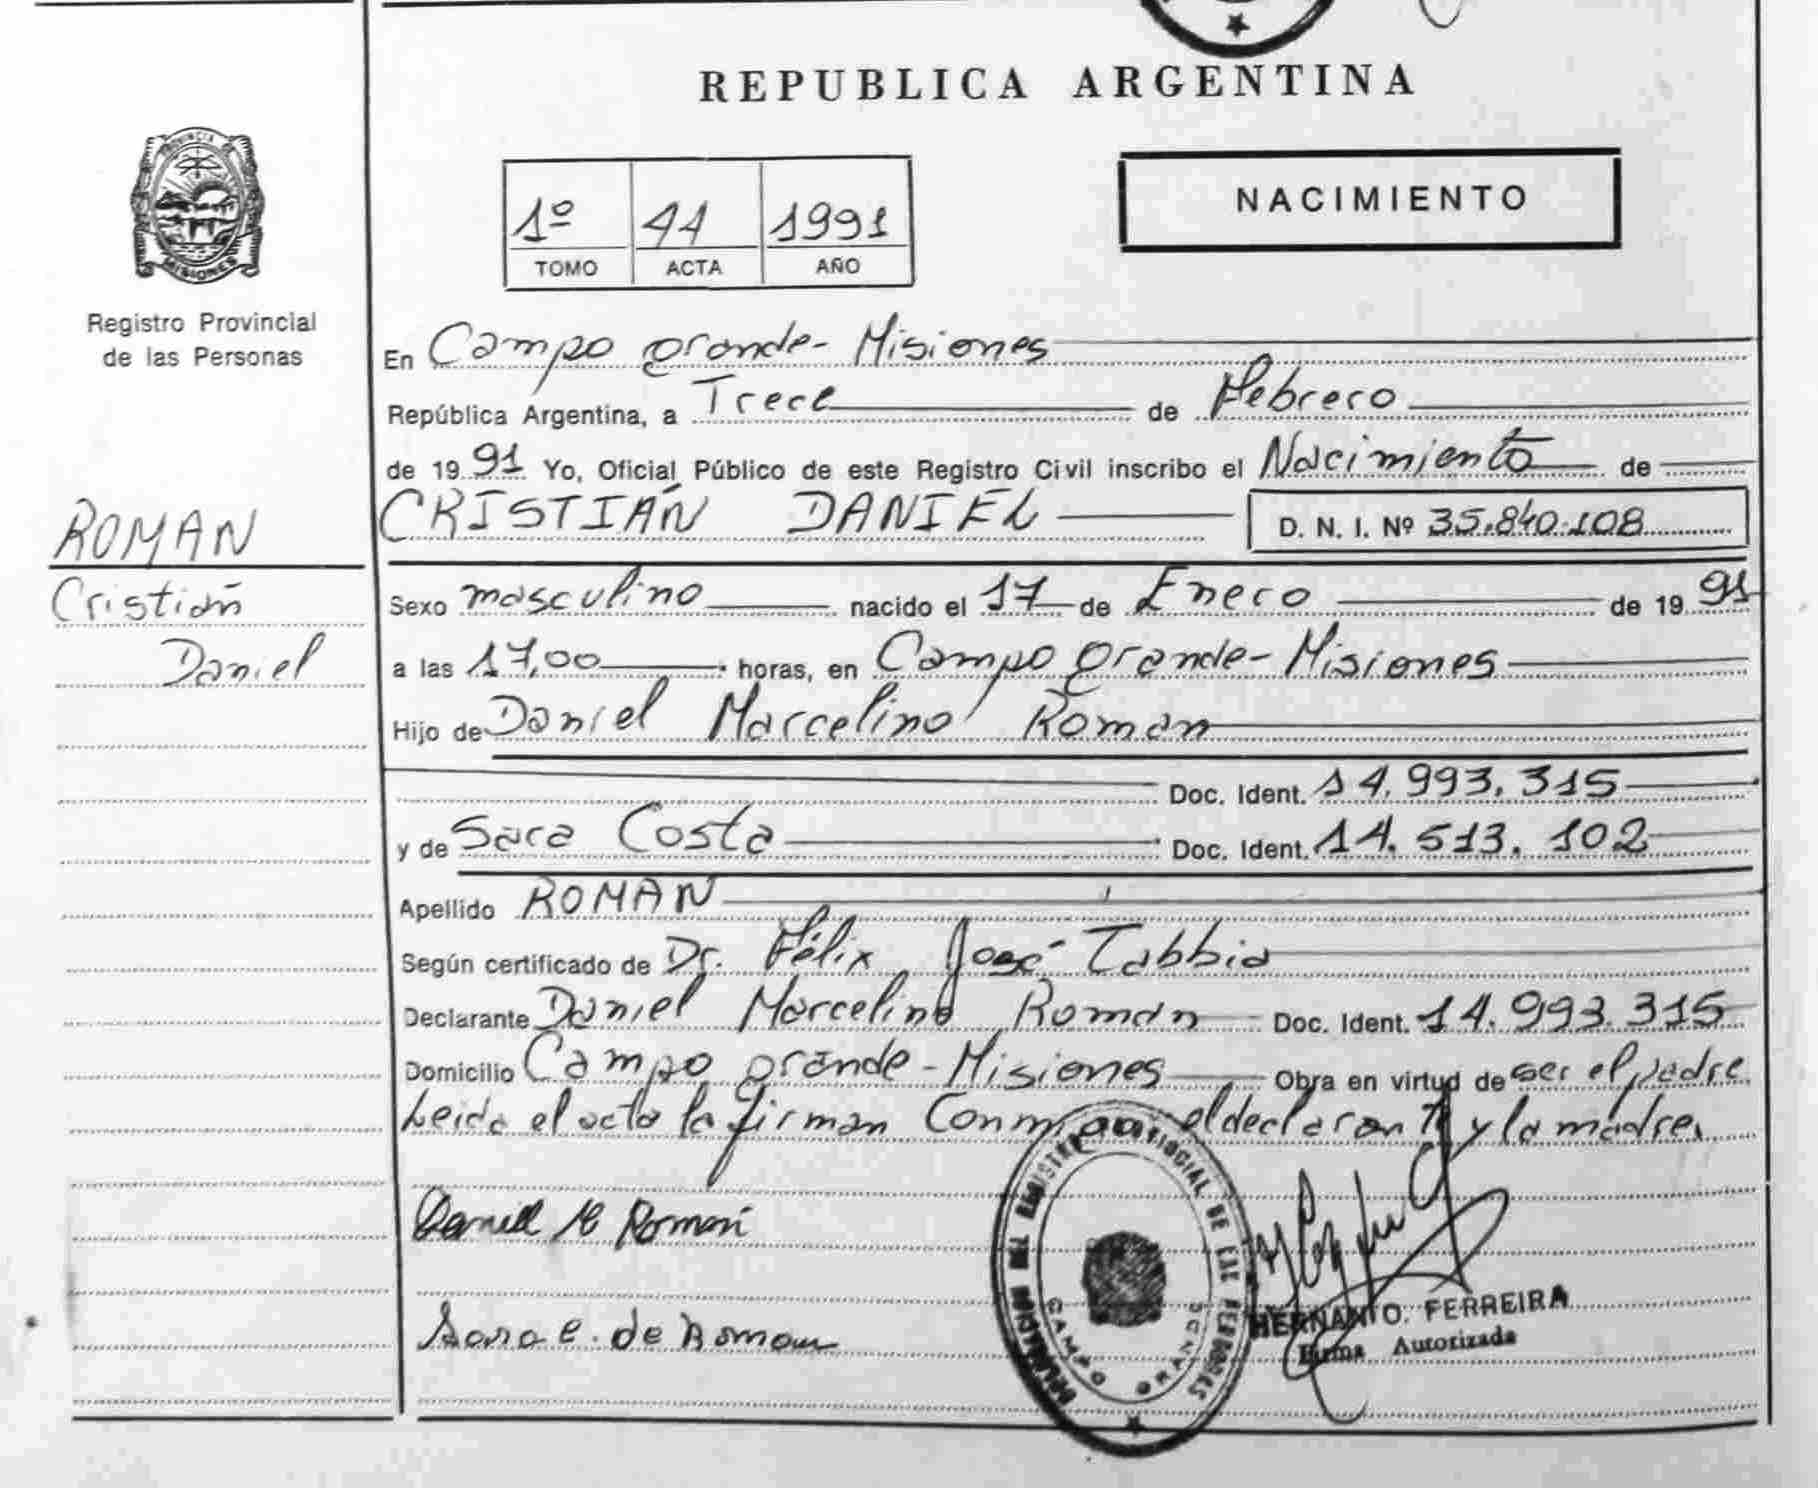 REPUBLICA ARGENTINA
NACIMIENTO
1º 44 1991
TOMO ACTA AÑO
PROVINCIA DE
MISIONES
Registro Provincial
de las Personas
ROMAN
Cristián
Daniel
En Campo Grande - Misiones
República Argentina, a Trece de Febrero
de 1991 Yo, Oficial Público de este Registro Civil inscribo el Nacimiento de
CRISTIÁN DANIEL D. N. I. Nº 35.840.108
Sexo masculino nacido el 17 de Enero de 1991
a las 17,00 horas, en Campo Grande - Misiones
Hijo de Daniel Marcelino Roman
Doc. Ident. 14.993.315
y de Sara Costa Doc. Ident. 14.513.102
Apellido ROMAN
Según certificado de Dr. Félix José Tabbia
Declarante Daniel Marcelino Roman Doc. Ident. 14.993.315
Domicilio Campo Grande - Misiones Obra en virtud de ser el padre
Leida el acta la firman Conmigo el declarante y la madre.
Daniel M Roman
Sara C. de Roman
CAMPO GRANDE
HERNAN O. FERREIRA
Firma Autorizada